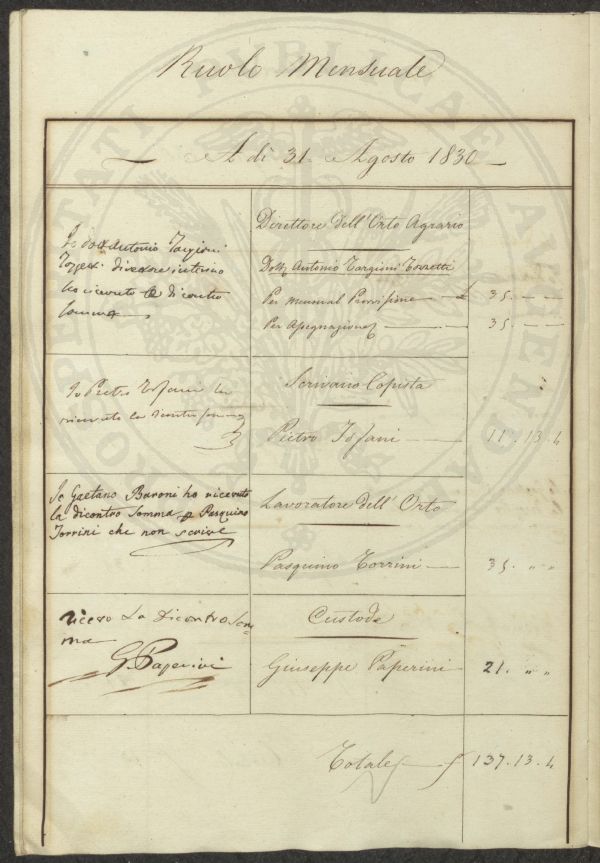 Ruolo Mensuale
A dì 31. Agosto 1830
Io Dott Antonio Targioni
Tozzetti Direttore interino
ho ricevuto la di contro
somma
Direttore dell'Orto Agrario
Dott. Antonio Targioni Tozzetti
Per mensual Provvisione £ 35. — —
Per Assegnazione 35. — —
Io Pietro Tofani ho
ricevuto la di contro somma
Scrivano Copista
Pietro Tofani 11. 13. 4
Io Gaetano Baroni ho ricevuto
la dicontro Somma p Pasquino
Torrini che non scrive
Lavoratore dell'Orto
Pasquino Torrini 35. " "
ricevo La Dicontro Som-
ma
G. Paperini
Custode
Giuseppe Paperini 21. " "
Totale £ 137. 13. 4
PUBLICAE